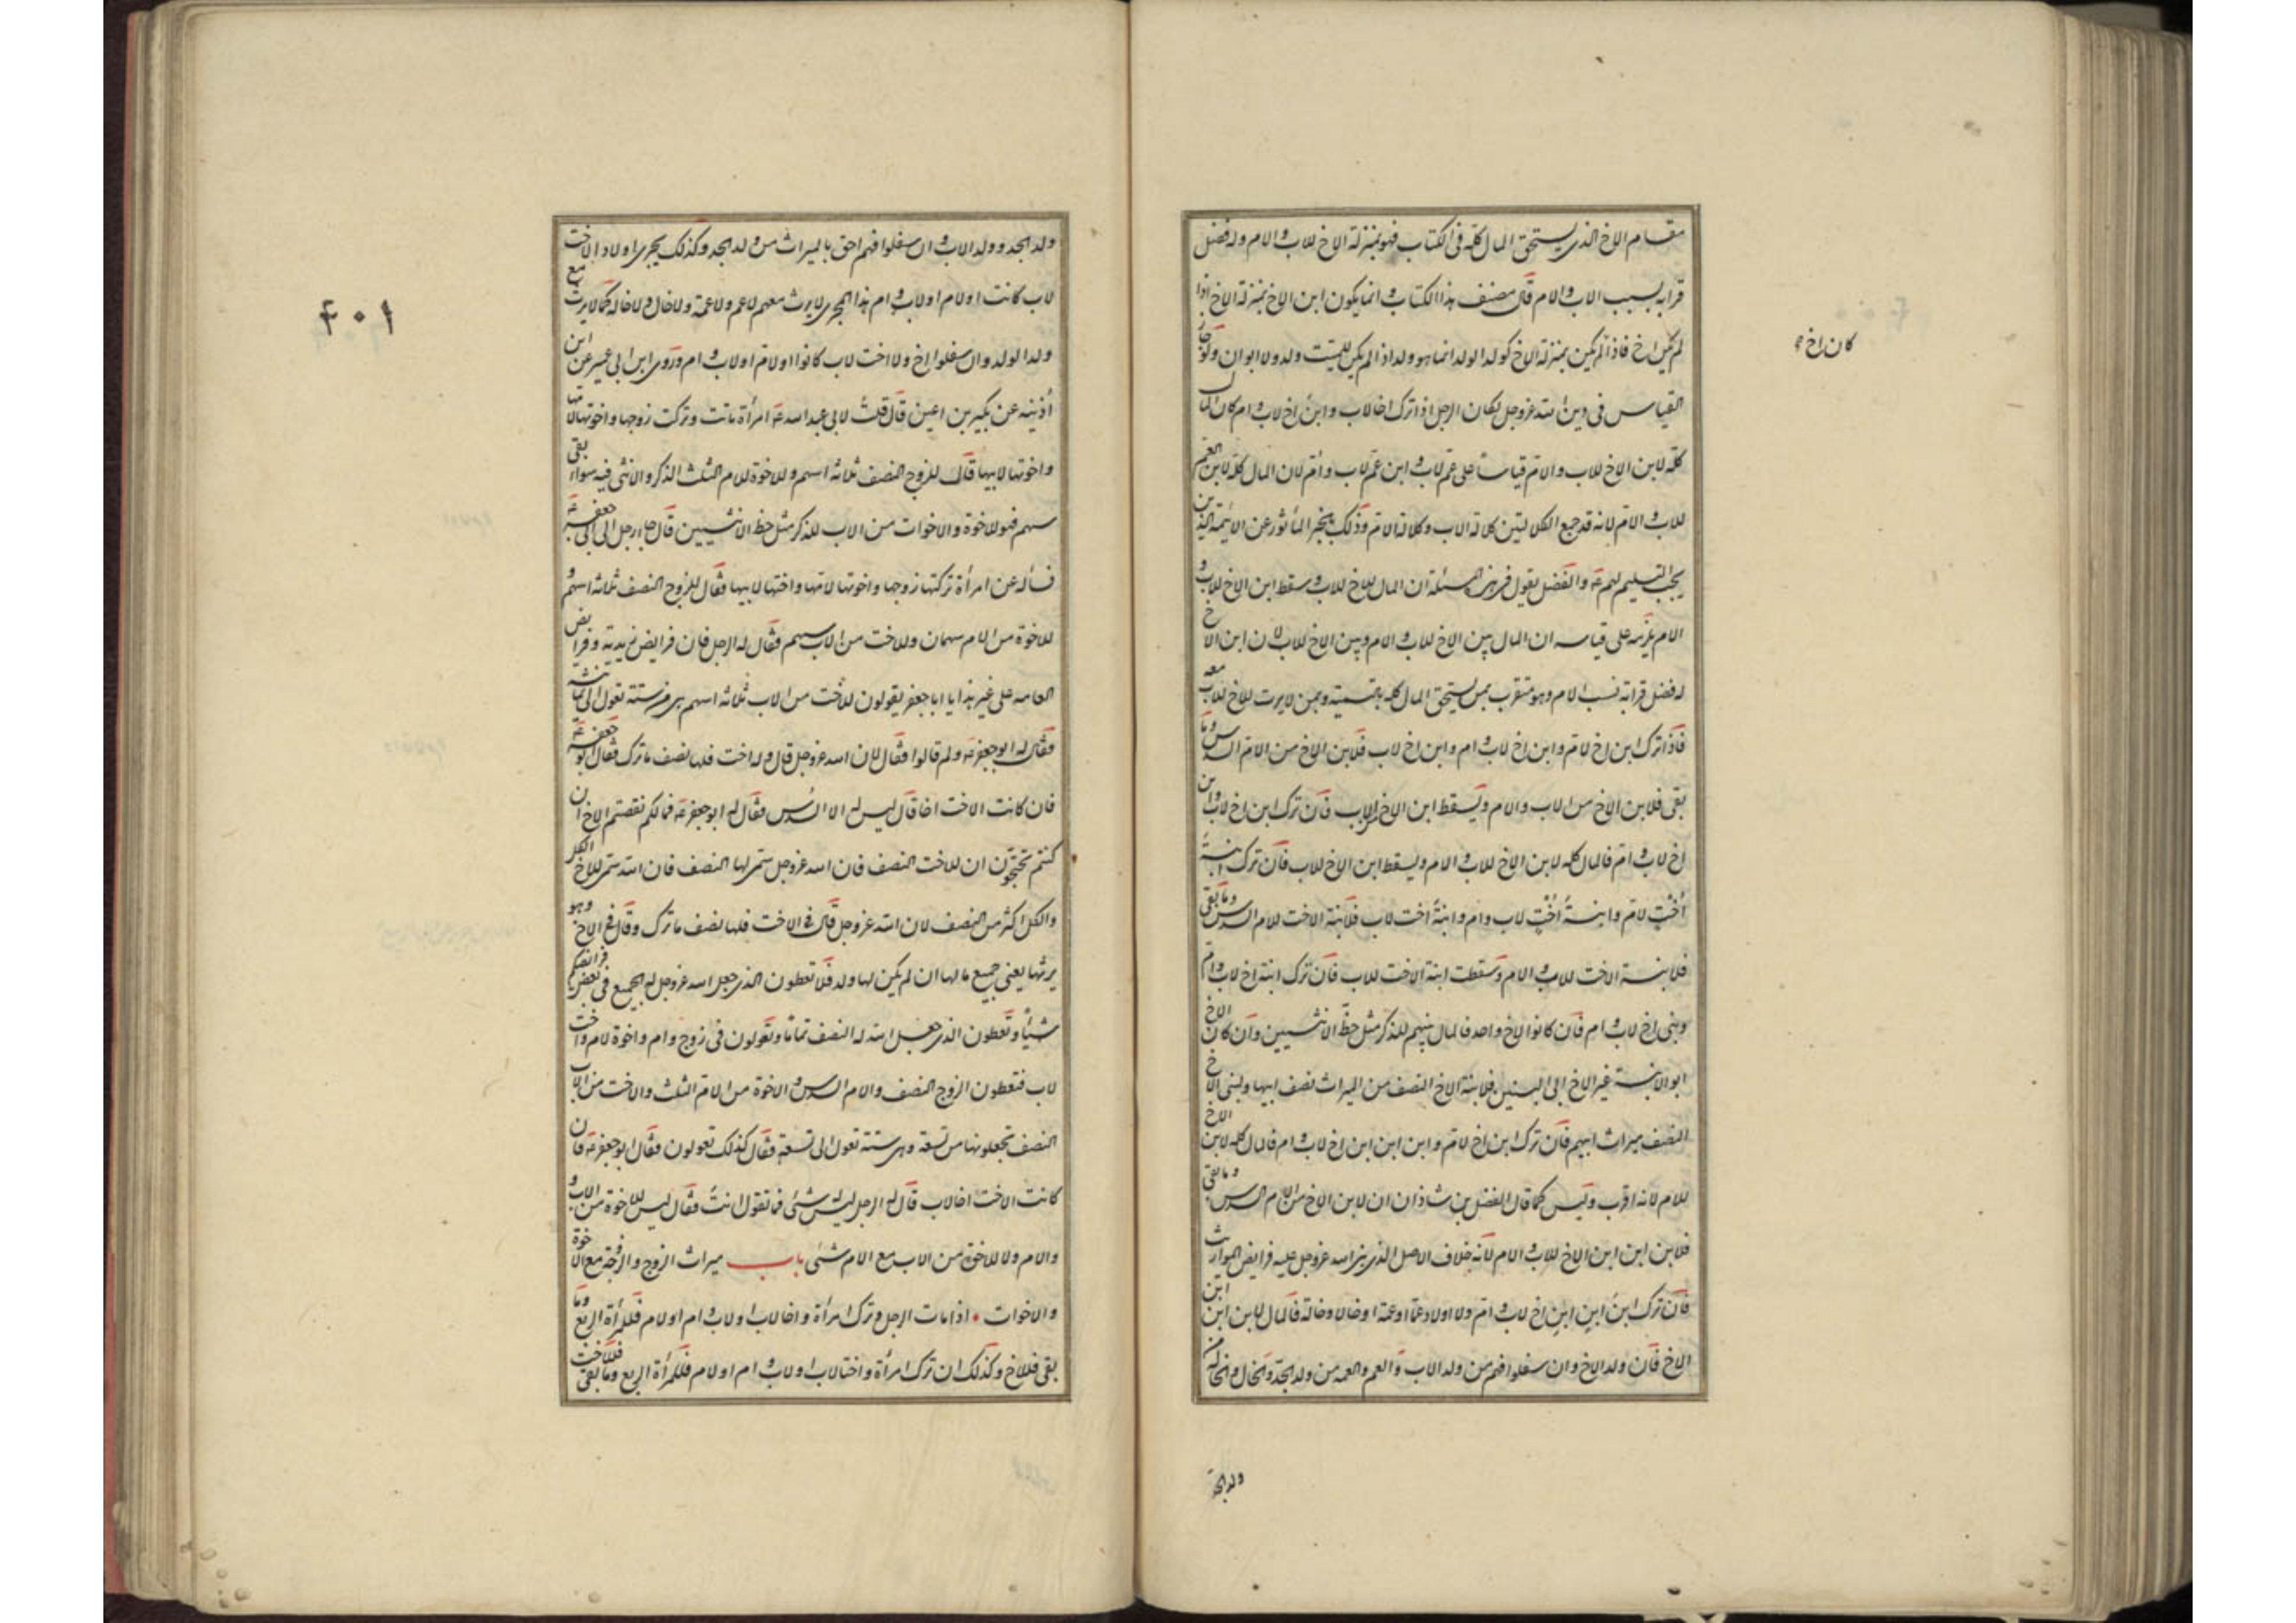 مقام الاخ الذى يستحق المال كله فى الكتاب فهو بمنزلة الاخ للاب والام وله فضل
قرابة بسبب الاب والام قال مصنف هذا الكتاب وانما يكون ابن الاخ بمنزلة الاخ اذا
لم يكن اخ فاذا لم يكن بمنزلة الاخ كولد الولد انما هو ولد اذا لم يكن للميت ولد ولا ابوان ولو جاز
كان اخ
القياس فى دين الله عز وجل لكان الرجل اذا ترك اخا لاب وابن اخ لاب وام كان المال
كله لابن الاخ للاب والام قياسا على عم لاب وابن عم لاب وام لان المال كله لابن العم
للاب والام لانه قد جمع الكلالتين كلالة الاب وكلالة الام وذلك بالخبر المأثور عن الائمة الذين
يجب التسليم لهم ع والفضل يقول فى هذه المسئلة ان المال للاخ للاب وسقط ابن الاخ للاب و
الام يلزمه على قياسه ان المال بين الاخ للاب والام وبين الاخ للاب لان ابن الاخ
له فضل قرابة نسب الام وهو متقرب بمن يستحق المال كله بالتسمية وبمن لا يرث للاخ للاب معه
فاذا ترك ابن اخ لام وابن اخ لاب وام وابن اخ لاب فلابن الاخ من الام السدس وما
بقى فلابن الاخ من الاب والام ويسقط ابن الاخ للاب فان ترك ابن اخ لاب وابن
اخ لاب وام فالمال كله لابن الاخ للاب والام ويسقط ابن الاخ للاب فان ترك ابنة
اخت لام وابنة اخت لاب وام وابنة اخت لاب فلابنة الاخت للام السدس وما بقى
فلابنة الاخت للاب والام وسقطت ابنة الاخت للاب فان ترك ابنة اخ لاب وام
وبنى اخ لاب وام فان كانوا لاخ واحد فالمال بينهم للذكر مثل حظ الانثيين وان كان الاخ
ابو الابنة غير الاخ ابى البنين فلابنة الاخ النصف من الميراث نصف ابيها ولبنى الاخ
النصف ميراث ابيهم فان ترك ابن اخ لام وابن ابن ابن اخ لاب وام فالمال كله لابن الاخ
للام لانه اقرب وليس كما قال الفضل بن شاذان ان لابن الاخ من الام السدس وما بقى
فلابن ابن ابن الاخ للاب والام لانه خلاف الاصل الذى بنى الله عز وجل عليه فرايض المواريث
فان ترك ابن ابن ابن اخ لاب وام ولا اولاد عما او عمة او خالا وخالة فالمال لابن ابن ابن
الاخ فان ولد الاخ وان سفلوا فهم من ولد الاب والعم والعمة من ولد الجد والخال والخالة من
ولد الجد
٤٠١
ولد الجد وولد الاب وان سفلوا فهم احق بالميراث من ولد الجد وكذلك يجرى اولاد الاخت
لاب كانت او لام او لاب وام هذا المجرى لا يرث معهم لا عم ولا عمة ولا خال ولا خالة كما لا يرث مع
ولد الولد وان سفلوا اخ ولا اخت لاب كانوا او لام او لاب وام وروى ابن ابى عمير عن ابن
أذينة عن بكير بن اعين قال قلت لابى عبد الله ع امرأة ماتت وتركت زوجها واخوتها لامها
واخوتها لابيها قال للزوج النصف ثلاثة اسهم وللاخوة للام الثلث الذكر والانثى فيه سواء بقى
سهم فهو للاخوة والاخوات من الاب للذكر مثل حظ الانثيين قال جاء رجل الى ابى جعفر ع
فسأله عن امرأة تركتها زوجها واخوتها لامها واختها لابيها فقال للزوج النصف ثلاثة اسهم و
للاخوة من الام سهمان وللاخت من الاب سهم فقال له الرجل فان فرايض زيد وفرايض
العامة على غير هذا يا ابا جعفر يقولون للاخت من الاب ثلاثة اسهم هى من ستة تعول الى ثمانية
فقال له ابو جعفر ع ولم قالوا فقال لان الله عز وجل قال وله اخت فلها نصف ما ترك فقال ابو جعفر ع
فان كانت الاخت اخا قال ليس له الا السدس فقال له ابو جعفر ع فما لكم نقصتم الاخ ان
كنتم تحتجون ان للاخت النصف فان الله عز وجل سمى لها النصف فان الله سمى للاخ الكل
والكل اكثر من النصف لان الله عز وجل قال فى الاخت فلها نصف ما ترك وقال فى الاخ وهو
يرثها يعنى جميع مالها ان لم يكن لها ولد فلا تعطون الذى جعل الله عز وجل له الجميع فى بعض فرائضكم
شيئا وتعطون الذى جعل الله له النصف تماما وتقولون فى زوج وام واخوة لام واخت
لاب فتعطون الزوج النصف والام السدس والاخوة من الام الثلث والاخت من الاب
النصف تجعلونها من تسعة وهى ستة تعول الى تسعة فقال كذلك تقولون فقال ابو جعفر ع فان
كانت الاخت اخا لاب قال له الرجل ليس له شئ فما تقول انت فقال ليس للاخوة من الاب و
والام ولا للاخوة من الاب مع الام شئ باب ميراث الزوج والزوجة مع الاخوة
والاخوات • اذا مات الرجل وترك امرأة واخا لاب او لاب وام او لام فللمرأة الربع وما
بقى فللاخ وكذلك ان ترك امرأة واختا لاب او لاب وام او لام فللمرأة الربع وما بقى فللاخت